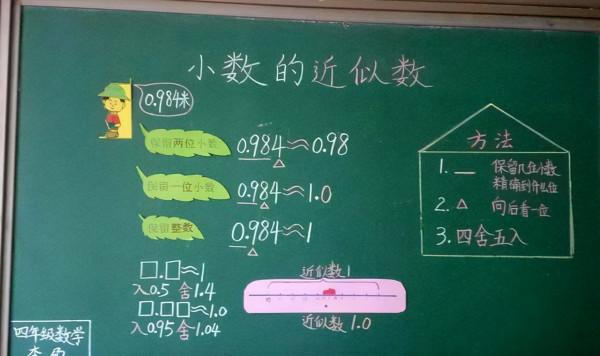 小数的近似数
0.984米
保留两位小数
0.984≈0.98
△
保留一位小数
0.984≈1.0
△
保留整数
0.984≈1
△
□.□≈1
入0.5 舍1.4
□.□□≈1.0
入0.95 舍1.04
近似数1
近似数1.0
方法
1. — 保留几位小数
精确到什么位
2. △ 向后看一位
3. 四舍五入
四年级数学